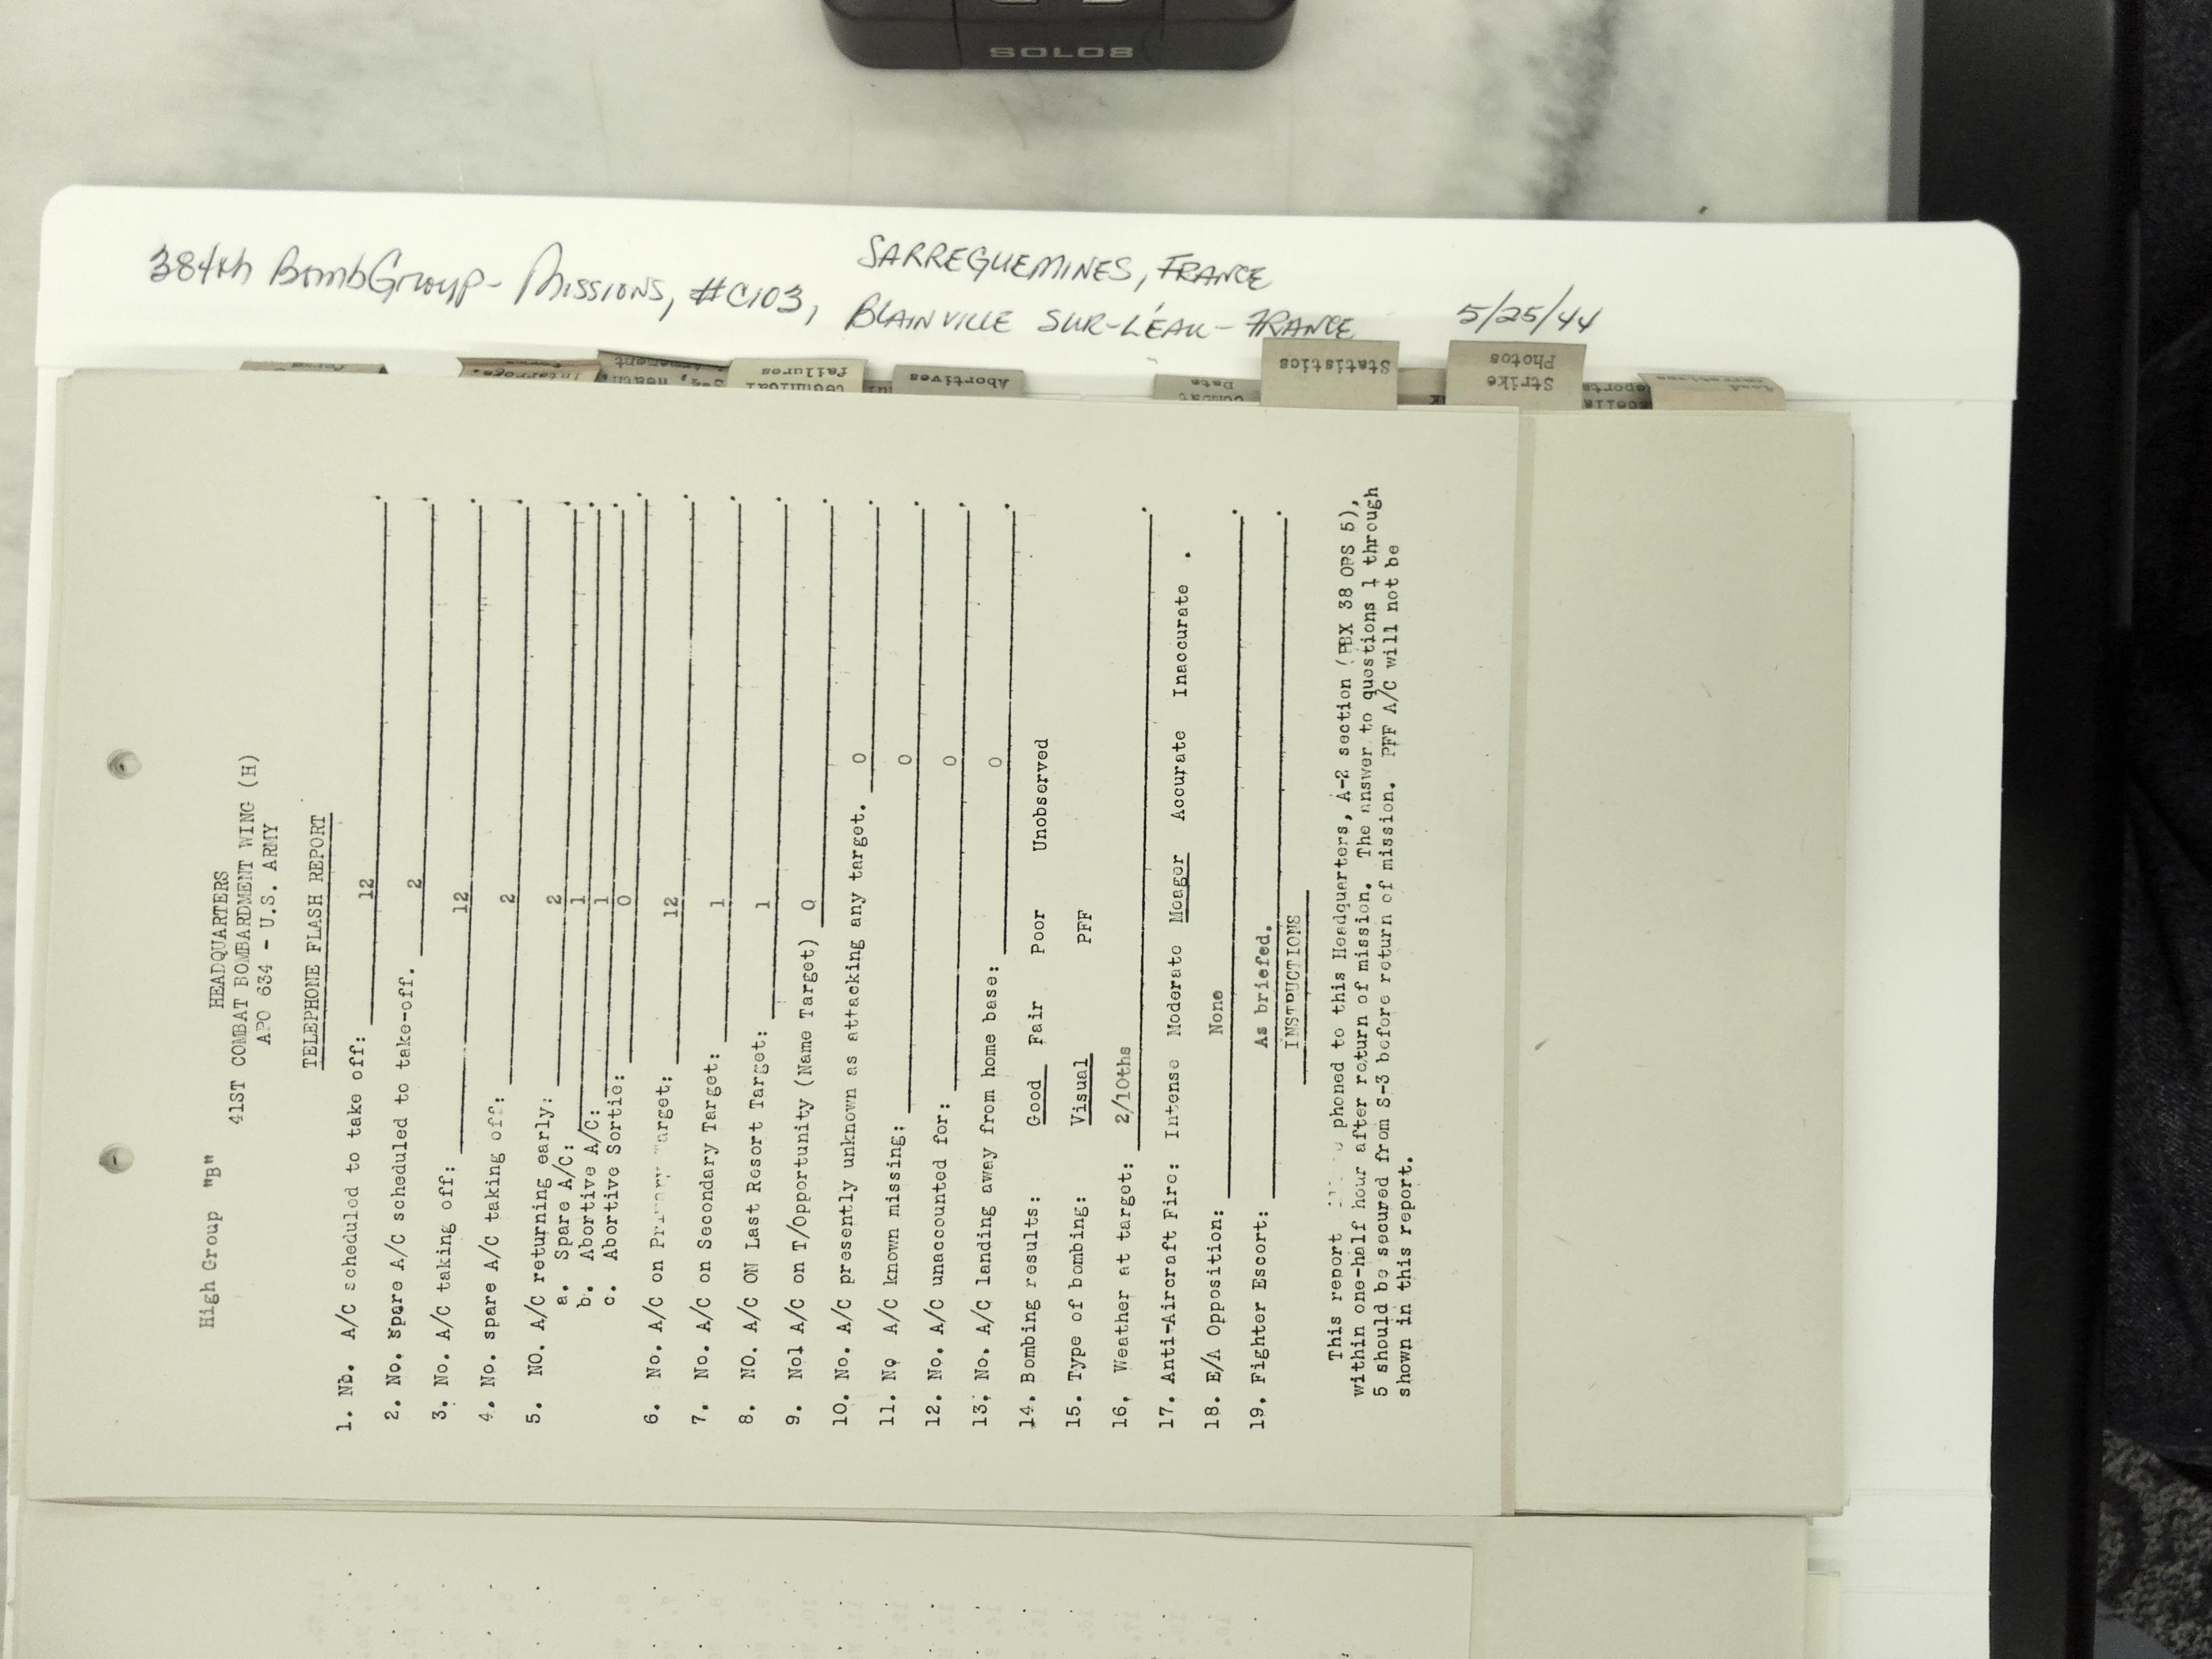 SOLO8
384th BombGroup - Missions, #C103,
SARREGUEMINES, FRANCE
BLAINVILLE SUR-L'ÉAU - FRANCE
5/25/44
Interroga.
technical
failures
Abortives
Combat
Data
Statistics
Strike
Photos
High Group "B"
HEADQUARTERS
41ST COMBAT BOMBARDMENT WING (H)
APO 634 - U.S. ARMY
TELEPHONE FLASH REPORT
1. No. A/C scheduled to take off: 12 .
2. No. Spare A/C scheduled to take-off. 2 .
3. No. A/C taking off: 12 .
4. No. spare A/C taking off: 2 .
5. NO. A/C returning early: 2 .
a. Spare A/C: 1 .
b. Abortive A/C: 1 .
c. Abortive Sortie: 0 .
6. No. A/C on Primary Target: 12 .
7. No. A/C on Secondary Target: 1 .
8. NO. A/C ON Last Resort Target: 1 .
9. Nol A/C on T/Opportunity (Name Target) 0 .
10. No. A/C presently unknown as attacking any target. 0 .
11. No A/C known missing: 0 .
12. No. A/C unaccounted for: 0 .
13. No. A/C landing away from home base: 0 .
14. Bombing results: Good Fair Poor Unobserved
15. Type of bombing: Visual PFF
16. Weather at target: 2/10ths .
17. Anti-Aircraft Fire: Intense Moderate Meager Accurate Inaccurate .
18. E/A Opposition: None .
19. Fighter Escort: As briefed. .
INSTRUCTIONS
This report phoned to this Headquarters, A-2 section (PBX 38 OPS 5),
within one-half hour after return of mission. The answer to questions 1 through
5 should be secured from S-3 before return of mission. PFF A/C will not be
shown in this report.